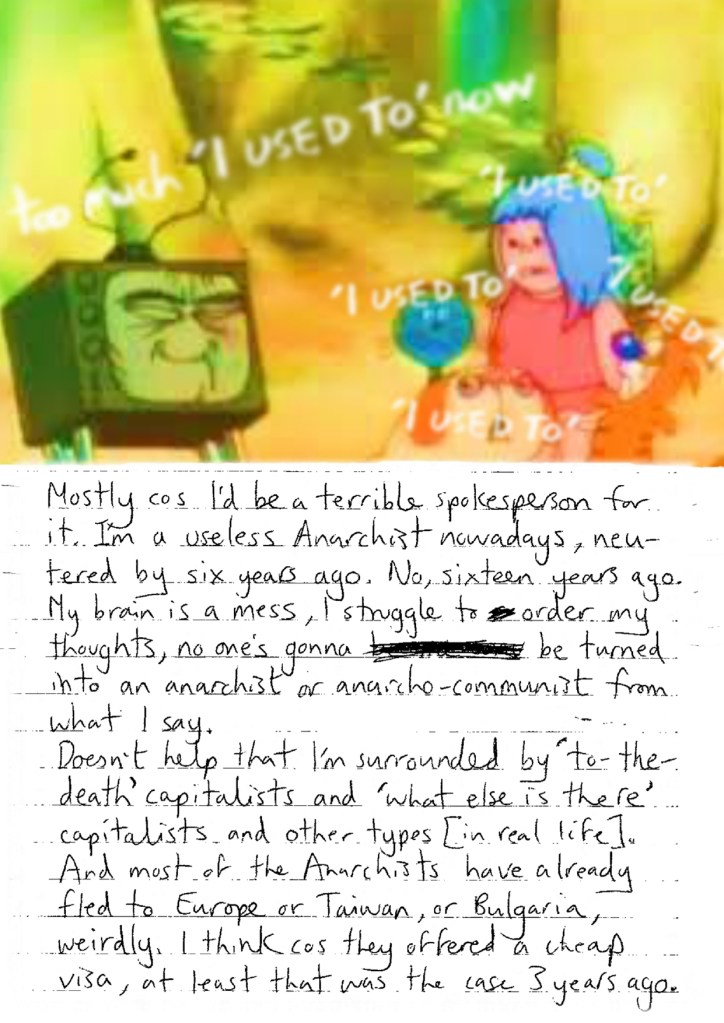 too much 'I USED TO' now
'I USED TO'
'I USED TO'
'I USED T
'I USED TO'
Mostly cos I'd be a terrible spokesperson for
it. I'm a useless Anarchist nowadays, neu-
tered by six years ago. No, sixteen years ago.
My brain is a mess, I struggle to order my
thoughts, no one's gonna be turned
into an anarchist or anarcho-communist from
what I say.
Doesn't help that I'm surrounded by 'to-the-
death' capitalists and 'what else is there'
capitalists and other types [in real life].
And most of the Anarchists have already
fled to Europe or Taiwan, or Bulgaria,
weirdly. I think cos they offered a cheap
visa, at least that was the case 3 years ago.